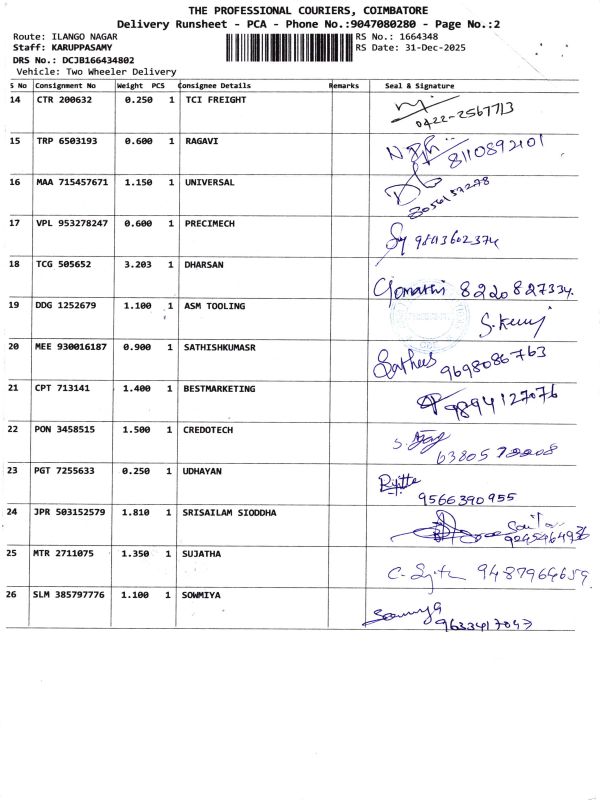 THE PROFESSIONAL COURIERS, COIMBATORE
Delivery Runsheet - PCA - Phone No.:9047080280 - Page No.:2
Route: ILANGO NAGAR RS No.: 1664348
Staff: KARUPPASAMY RS Date: 31-Dec-2025
DRS No.: DCJB166434802
Vehicle: Two Wheeler Delivery
S No Consignment No Weight PCS Consignee Details Remarks Seal & Signature
14 CTR 200632 0.250 1 TCI FREIGHT 0422-2567713
15 TRP 6503193 0.600 1 RAGAVI 8110892101
16 MAA 715457671 1.150 1 UNIVERSAL 8056152278
17 VPL 953278247 0.600 1 PRECIMECH
18 TCG 505652 3.203 1 DHARSAN Gomathi 8220827334.
19 DDG 1252679 1.100 1 ASM TOOLING
20 MEE 930016187 0.900 1 SATHISHKUMASR Sathees 9698086763
21 CPT 713141 1.400 1 BESTMARKETING 9894127076
22 PON 3458515 1.500 1 CREDOTECH
23 PGT 7255633 0.250 1 UDHAYAN 9566390955
24 JPR 503152579 1.810 1 SRISAILAM SIODDHA
25 MTR 2711075 1.350 1 SUJATHA 9487964659
26 SLM 385797776 1.100 1 SOWMIYA Sowmiya 9633417047